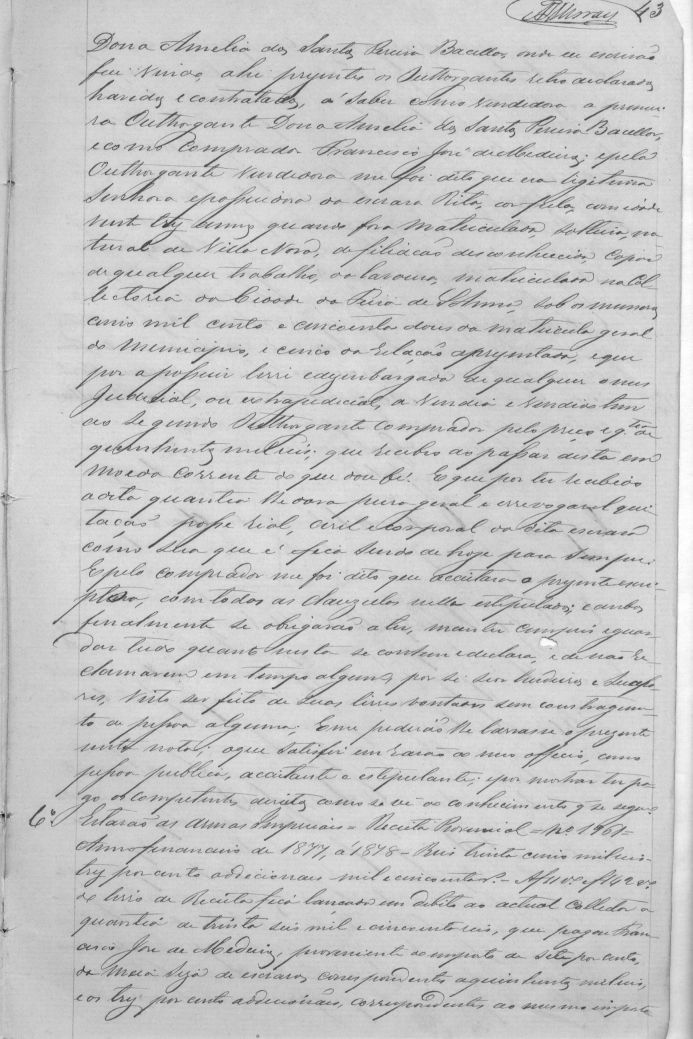 43
Dona Amelia dos Santos Pereira Bacellar, onde eu escrivão
fui vindo, ahi presentes os Outhorgantes retro declarados,
havidos e contratados, á saber como vendedora a primei-
ra Outhorgante Dona Amelia dos Santos Pereira Bacellar,
e como Comprador Francisco José de Medeiros; e pela
Outhorgante Vendedora me foi dito que era legitima
Senhora e possuidora da escrava Rita, côr preta, com idade
vinte tres annos quando fora matriculada, solteira, na-
tural de Villa Nova, de filiação desconhecida, capaz
de qualquer trabalho, da lavoura, matriculada na Col-
lectoria da Cidade da Feira de Sant'Anna, sob os numeros
cinco mil cento e cincoenta dous da matricula geral
do Municipio, e cinco da relação apresentada, e que
por a possuir livre e desembargada de qualquer onus
Judicial, ou extrajudicial, a vendia e vendido tem
ao Segundo Outhorgante Comprador pelo preço e q.tia de
quinhentos mil reis; que recebeo ao passar desta em
moeda corrente do que dou fé. E que por ter recebido
a dita quantia lhe dava pura geral e irrevogavel qui-
tação posse real, civil e corporal da dita escrava
como sua que é e fica sendo de hoje para sempre.
E pelo comprador me foi dito que acceitava a presente escri-
ptura, com todas as clausulas nella estipuladas; e ambos
finalmente se obrigarão a ter, manter cumprir e guar-
dar tudo quanto nesta se contem e declara, e de não re-
clamarem em tempo algum, por si seos herdeiros e Successo-
res, visto ser feito de suas livres vontades sem constrangimen-
to de pessoa alguma; E me pedirão lhe lavrasse o presente
nesta nota; o que satisfiz em razão do meu officio, como
pessoa publica, acceitante e estipulante; e por mostrar ter pa-
go os competentes direitos como se vê do conhecimento q' se segue:
6ª Estavão as Armas Imperiaes = Receita Provincial = Nº 1961 =
Anno financeiro de 1877, á 1878 = Reis trinta cinco mil reis =
tres por cento addicionaes mil e cincoenta rs. =
do livro de Receita fica lançado em debito ao actual Collector a
quantia de trinta seis mil e cincoenta reis, que pagou Fran-
cisco José de Medeiros, proveniente do imposto de sete por cento,
da meia siza de escravos, correspondentes a quinhentos mil reis,
e os tres por cento addicionaes, correspondentes ao mesmo imposto